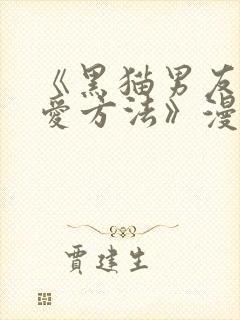 《黑猫男友
爱方法》漫
贾建生